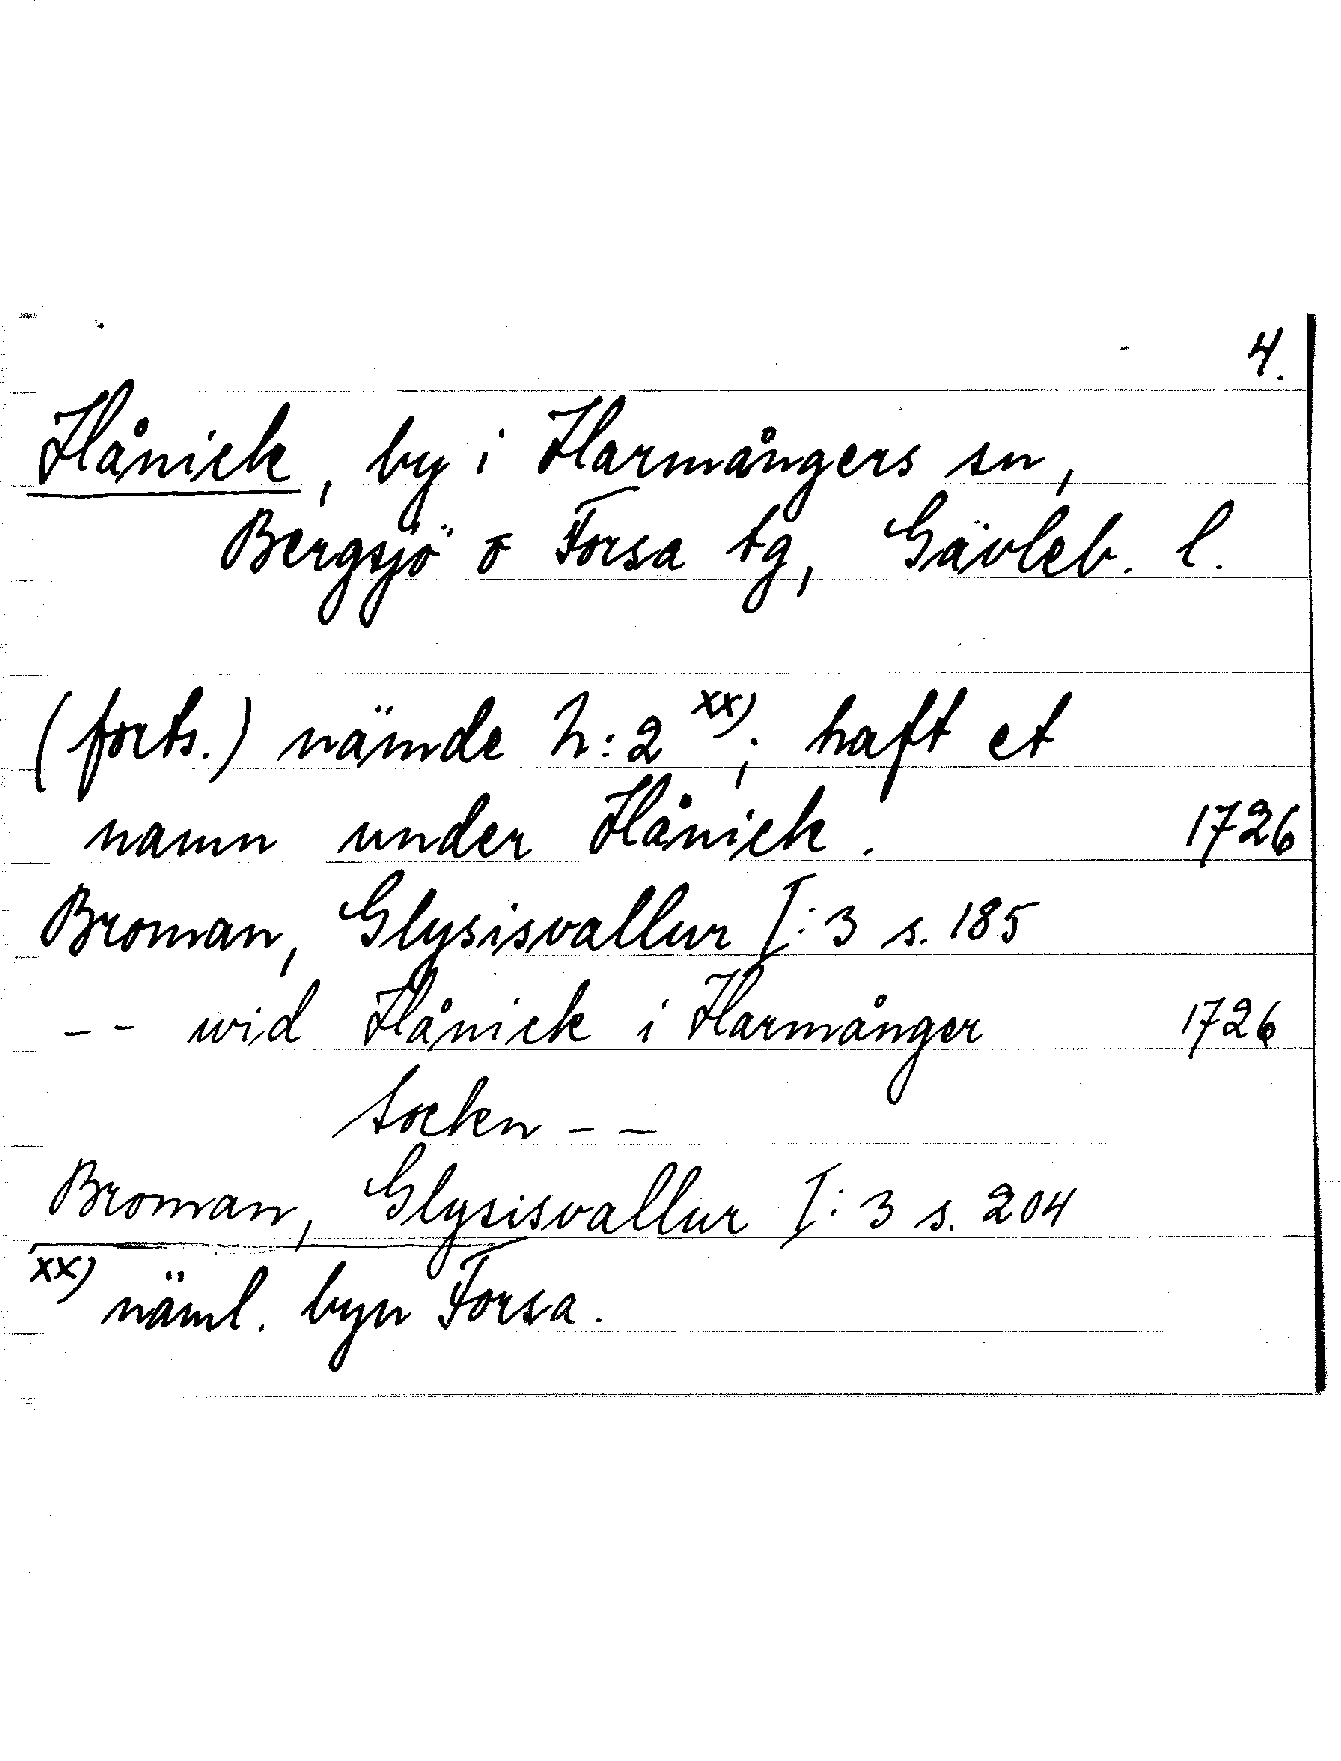 4.
Hånick, by i Harmångers sn,
Bergsjö o Forsa tg, Gävleb. l.
(forts.) nämde h:2 xx); haft et
namn under Hånick. 1726
Broman, Glysisvallur I:3 s. 185
-- wid Hånick i Harmånger 1726
Sockn --
Broman, Glysisvallur I:3 s. 204
xx) näml. byn Forsa.